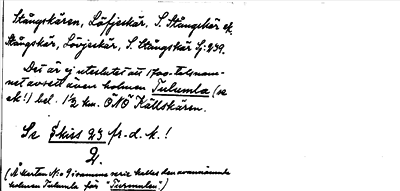 Stångskären, Löfjeskär, S. Stångskär ek.
Stångskär, Lövjeskär, S. Stångskär Lj:939.
Det är ej uteslutet att 1700-talsnam-
net avsett även holmen Tulumla (se
ek!) bel. 1½ km. ÖNÖ Källskären.
Se skiss 23 fr. d. k.!
2.
(Å kartan N:o 9 i samma serie kallas den ovannämnda
holmen Tulumla för "Turmulen")